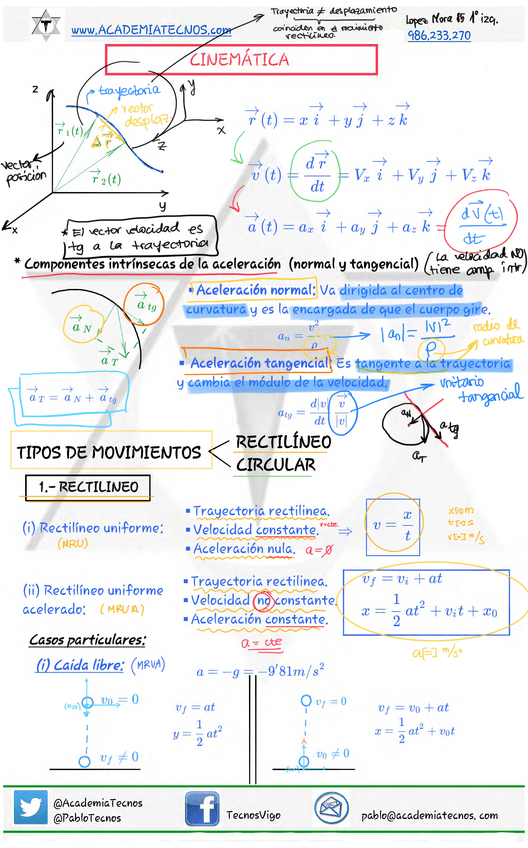 www.ACADEMIATECNOS.com
Trayectoria ≠ desplazamiento
coinciden en el movimiento
rectilíneo.
Lopez Mora 85 1º izq.
986.233.270
CINEMÁTICA
z
trayectoria
vector
desplaz
y
x
z
r₁(t)
Δr
vector
posición
r₂(t)
x
y
r(t) = x i + y j + z k
v(t) = dr/dt = Vx i + Vy j + Vz k
a(t) = ax i + ay j + az k = dv(t)/dt
* El vector velocidad es
tg a la trayectoria
* Componentes intrínsecas de la aceleración (normal y tangencial) (La velocidad NO
tiene comp. intr)
▪ Aceleración normal: Va dirigida al centro de
curvatura y es la encargada de que el cuerpo gire.
a_tg
a_N
a_T
a_n = v²/ρ
|a_n| = |V|²/ρ
radio de
curvatura
▪ Aceleración tangencial: Es tangente a la trayectoria
y cambia el módulo de la velocidad.
a_T = a_N + a_tg
a_tg = d|v|/dt v/|v|
unitario
tangencial
a_N
a_tg
a_T
TIPOS DE MOVIMIENTOS
RECTILÍNEO
CIRCULAR
1.- RECTILINEO
(i) Rectilíneo uniforme:
(MRU)
▪ Trayectoria rectilinea.
▪ Velocidad constante. v=cte. ⇒
▪ Aceleración nula. a=0
v = x/t
x[=]m
t[=]s
v[=] m/s
(ii) Rectilíneo uniforme
acelerado: (MRUA)
▪ Trayectoria rectilinea.
▪ Velocidad no constante.
▪ Aceleración constante.
a = cte
v_f = v_i + at
x = 1/2 at² + v_i t + x₀
a[=] m/s²
Casos particulares:
(i) Caida libre: (MRVA)
a = −g = −9'81m/s²
(0,0)
v₀ = 0
v_f ≠ 0
v_f = at
y = 1/2 at²
v_f = 0
v₀ ≠ 0
(0,0)
v_f = v₀ + at
x = 1/2 at² + v₀t
@AcademiaTecnos
@PabloTecnos
TecnosVigo
pablo@academiatecnos. com